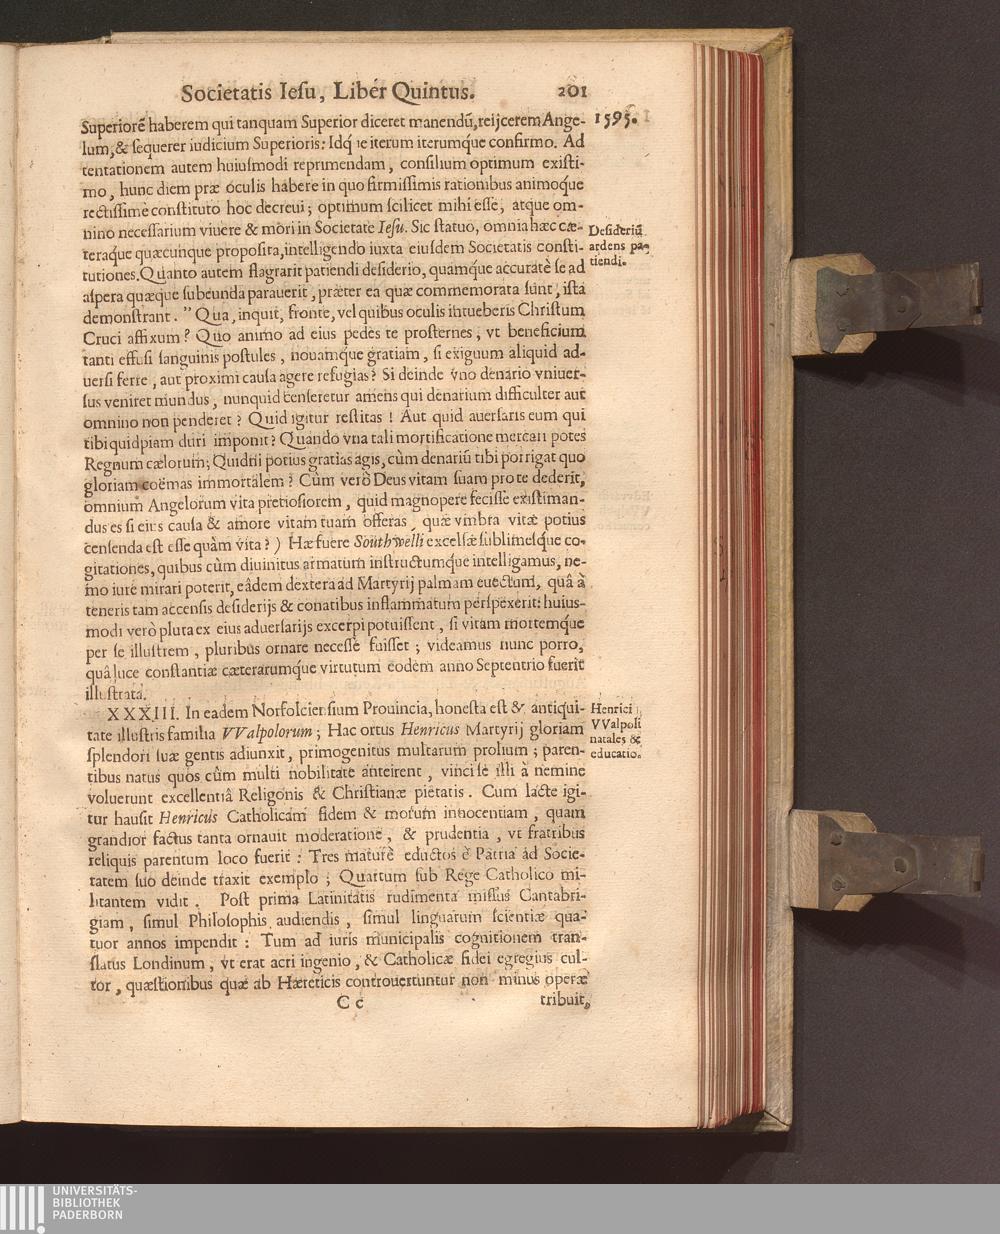 Societatis Iesu, Liber Quintus. 201
Superiorẽ haberem qui tanquam Superior diceret manendũ, reijcerem Ange- 1595.
lum, & sequerer iudicium Superioris: Idq́ ie iterum iterumq́ue confirmo. Ad
tentationem autem huiusmodi reprimendam, consilium optimum existi-
mo, hunc diem præ oculis habere in quo firmissimis rationibus animoq́ue
rectissimè constituto hoc decreui; optimum scilicet mihi esse, atque om-
nino necessarium viuere & mori in Societate Iesu. Sic statuo, omnia hæc cæ-
teraq́ue quæcunque proposita, intelligendo iuxta eiusdem Societatis consti-
tutiones. Quanto autem flagrarit patiendi desiderio, quamq́ue accuratè se ad
Desideriũ
ardens pa-
tiendi.
aspera quæque subeunda parauerit, præter ea quæ commemorata sunt, ista
demonstrant. " Qua, inquit, fronte, vel quibus oculis intueberis Christum
Cruci affixum? Quo animo ad eius pedes te prosternes, vt beneficium
tanti effusi sanguinis postules, nouamq́ue gratiam, si exiguum aliquid ad-
uersi ferre, aut proximi causa agere refugias? Si deinde vno denario vniuer-
sus veniret mundus, nunquid censeretur amens qui denarium difficulter aut
omnino non penderet? Quid igitur restitas! Aut quid auersaris eum qui
tibi quidpiam duri imponit? Quando vna tali mortificatione mercari potes
Regnum cælorum; Quidni potius gratias agis, cùm denariũ tibi porrigat quo
gloriam coëmas immortalem? Cùm verò Deus vitam suam pro te dederit,
omnium Angelorum vita pretiosiorem, quid magnopere fecisse existiman-
dus es si eius causa & amore vitam tuam offeras, quæ vmbra vitæ potius
censenda est esse quàm vita?) Hæ fuere Southwelli excelsæ sublimesq́ue co-
gitationes, quibus cùm diuinitus armatum instructumq́ue intelligamus, ne-
mo iure mirari poterit, eâdem dextera ad Martyrij palmam euectum, quâ à
teneris tam accensis desiderijs & conatibus inflammatum perspexerit: huius-
modi verò plura ex eius aduersarijs excerpi potuissent, si vitam mortemq́ue
per se illustrem, pluribus ornare necesse fuisset; videamus nunc porro,
quâ luce constantiæ cæterarumq́ue virtutum eodem anno Septentrio fuerit
illustrata.
XXXIII. In eadem Norfolciensium Prouincia, honesta est & antiqui-
tate illustris familia VValpolorum; Hac ortus Henricus Martyrij gloriam
splendori suæ gentis adiunxit, primogenitus multarum prolium; paren-
tibus natus quos cùm multi nobilitate anteirent, vinci se illi à nemine
Henrici
VValpoli
natales &
educatio.
voluerunt excellentiâ Religonis & Christianæ pietatis. Cum lacte igi-
tur hausit Henricus Catholicam fidem & morum innocentiam, quam
grandior factus tanta ornauit moderatione, & prudentia, vt fratribus
reliquis parentum loco fuerit: Tres maturè eductos è Patria ad Socie-
tatem suo deinde traxit exemplo; Quartum sub Rege Catholico mi-
litantem vidit. Post prima Latinitatis rudimenta missus Cantabri-
giam, simul Philosophis audiendis, simul linguarum scientiæ qua-
tuor annos impendit: Tum ad iuris municipalis cognitionem tran-
slatus Londinum, vt erat acri ingenio, & Catholicæ fidei egregius cul-
tor, quæstionibus quæ ab Hæreticis controuertuntur non minus operæ
C c tribuit,
UNIVERSITÄTS-
BIBLIOTHEK
PADERBORN